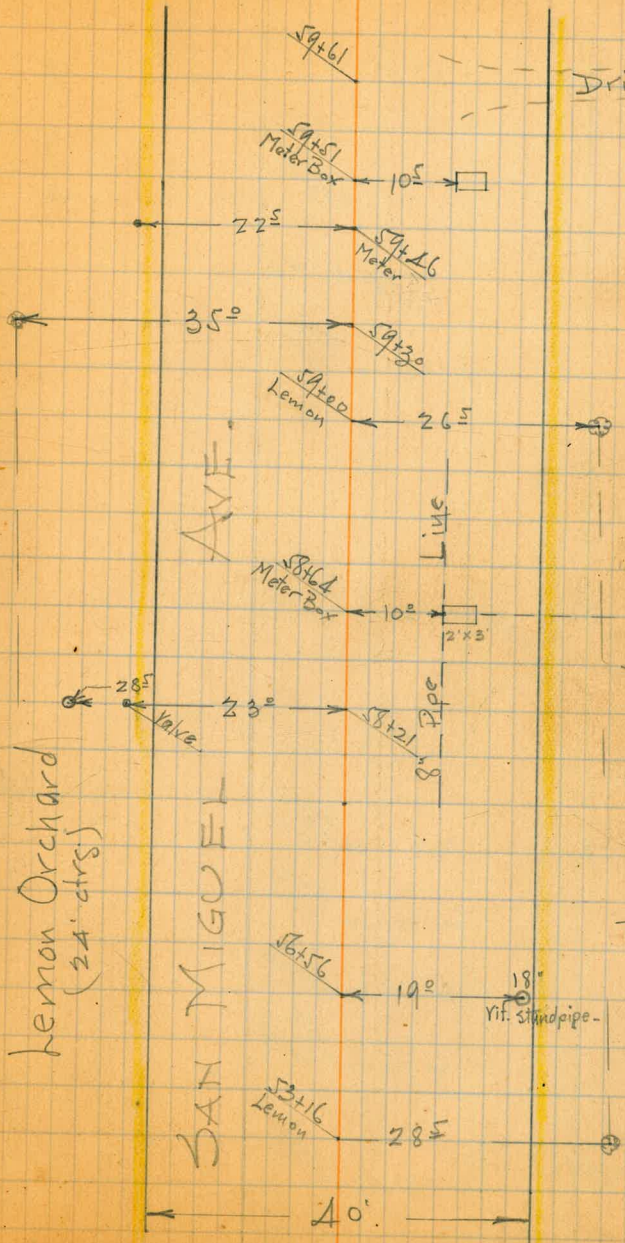 59+61
Dri
59+51
Meter Box
10⁵
22⁵
59+46
Meter
35⁰
59+30
59+00
Lemon
26⁵
AVE.
Line
58+64
Meter Box
10⁰
2'x3'
28⁵
23⁰
Valve
58+21
8" Pipe
Lemon Orchard
(24' ctrs.)
SAN MIGUEL
56+56
19⁰
18"
Vit. standpipe-
53+16
Lemon
28⁵
40'